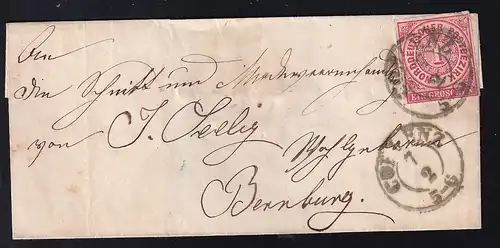 An
die Schnitt und Modewaarenhandlung
von J. Seelig
Wohlgeboren
Bernburg.
NORDDEUTSCHER POSTBEZIRK
1
EIN GROSCHEN
COBLENZ
7
2
5-6